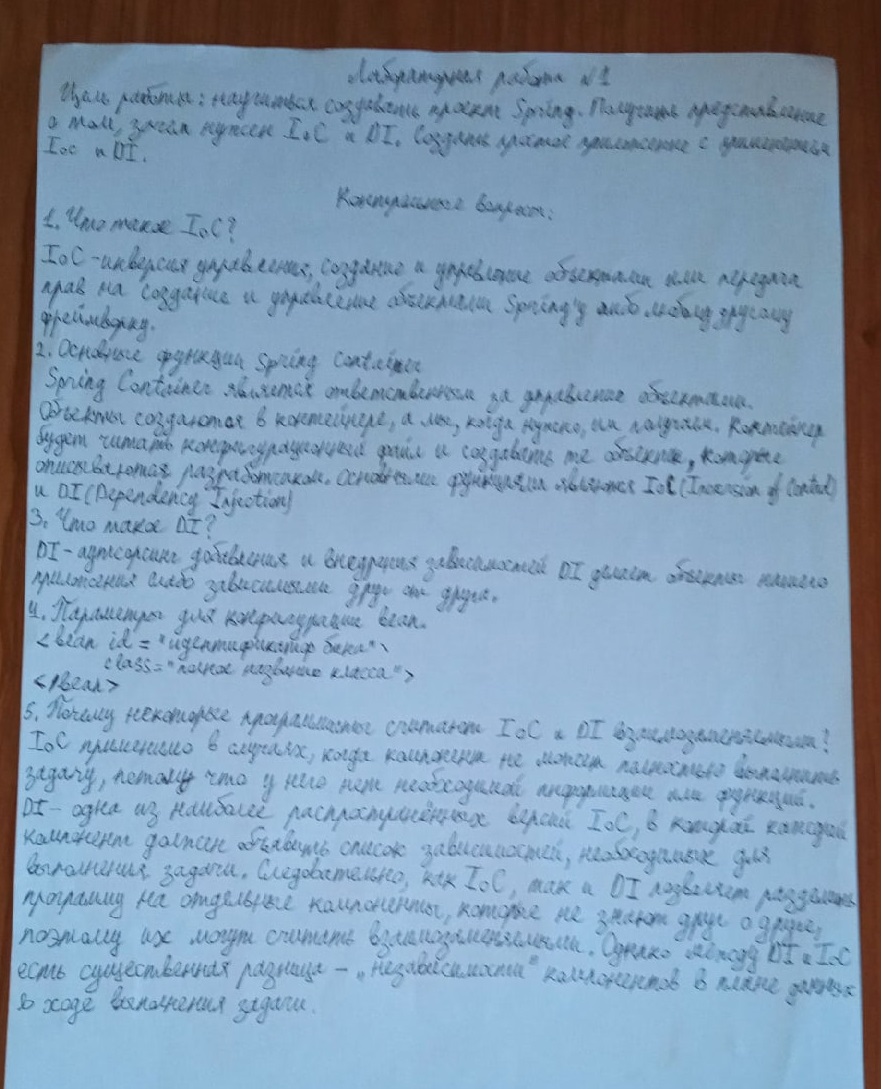 Лабораторная работа №1
Цель работы: научиться создавать проект Spring. Получить представление
о том, зачем нужен IoC и DI. Создать простое приложение с применением
IoC и DI.
Контрольные вопросы:
1. Что такое IoC?
IoC - инверсия управления, создание и управление объектами или передача
прав на создание и управление объектами Spring'у либо любому другому
фреймворку.
2. Основные функции Spring Container
Spring Container является ответственным за управление объектами.
Объекты создаются в контейнере, а мы, когда нужно, их получаем. Контейнер
будет читать конфигурационный файл и создавать те объекты, которые
описываются разработчиком. Основными функциями являются IoC (Inversion of Control)
и DI (Dependency Injection)
3. Что такое DI?
DI - аутсорсинг добавления и внедрения зависимостей DI делает объекты нашего
приложения слабо зависимыми друг от друга.
4. Параметры для конфигурации bean.
<bean id = "идентификатор бина"
class = "полное название класса">
</bean>
5. Почему некоторые программисты считают IoC и DI взаимозаменяемыми?
IoC применимо в случаях, когда компонент не может полностью выполнить
задачу, потому что у него нет необходимой информации или функций.
DI - одна из наиболее распространённых версий IoC, в которой каждый
компонент должен объявить список зависимостей, необходимых для
выполнения задачи. Следовательно, как IoC, так и DI позволяет разделить
программу на отдельные компоненты, которые не знают друг о друге,
поэтому их могут считать взаимозаменяемыми. Однако между DI и IoC
есть существенная разница - „независимости" компонентов в плане данных
в ходе выполнения задачи.